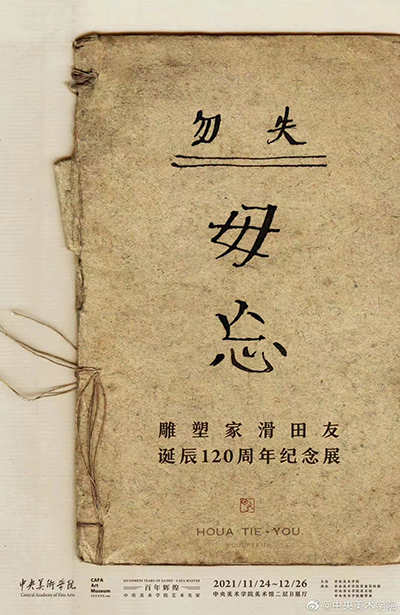 勿 失
毋
忘
雕塑家滑田友
诞辰120周年纪念展
HOUA TIE-YOU
SCULPTEUR
中央美術学院
Central Academy of Fine Arts
CAFA
Art
Museum
百年辉煌
中央美术学院艺术名家
2021/11/24~12/26
中央美术学院美术馆二层B展厅
@中央美术学院